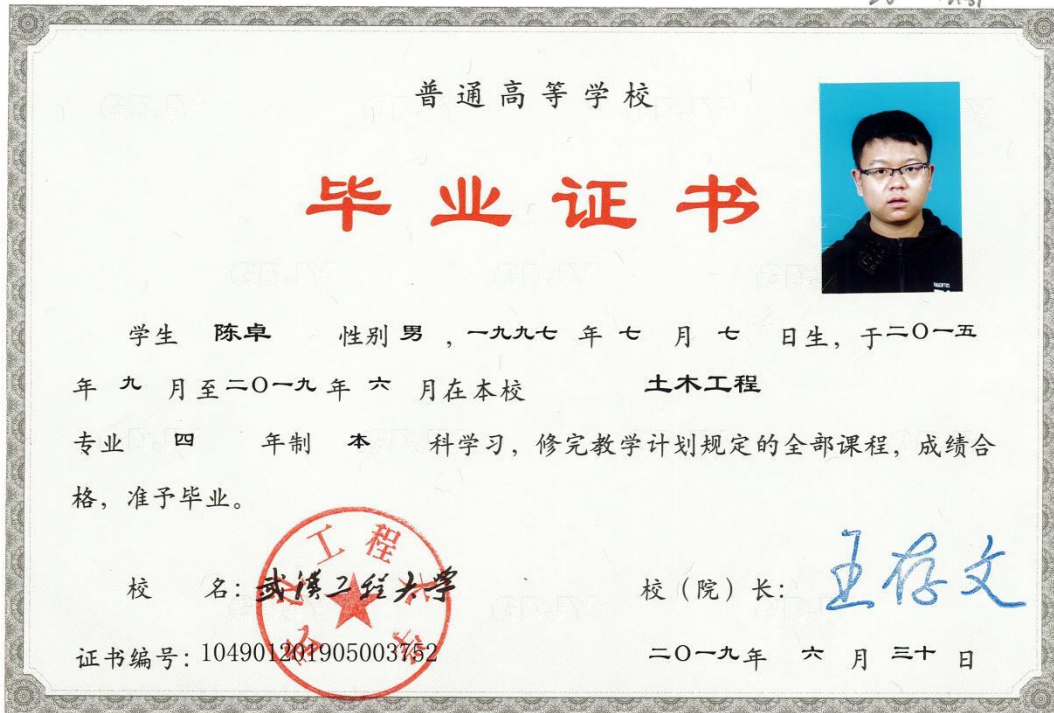 普通高等学校
毕业证书
学生 陈卓 性别 男 ，一九九七 年 七 月 七 日生，于二〇一五
年 九 月至二〇一九 年 六 月在本校 土木工程
专业 四 年制 本 科学习，修完教学计划规定的全部课程，成绩合
格，准予毕业。
校 名：武汉工程大学
校（院）长：王存文
证书编号：104901201905003752
二〇一九年 六 月 三十 日
武汉工程大学